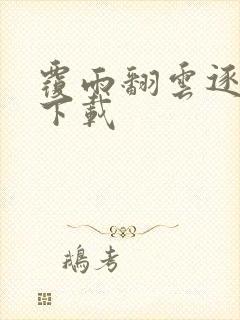 覆雨翻雲逐
下載
鵝考